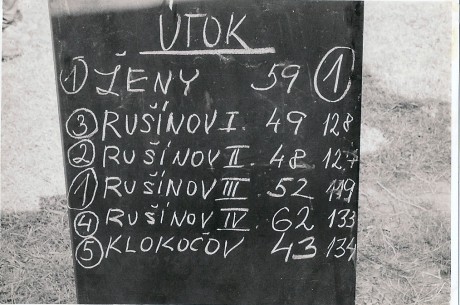 ÚTOK
① ŽENY 59 ①
③ RUŠÍNOV I. 49 128
② RUŠÍNOV II. 48 127
① RUŠÍNOV III. 52 119
④ RUŠÍNOV IV. 62 133
⑤ KLOKOČOV 43 134